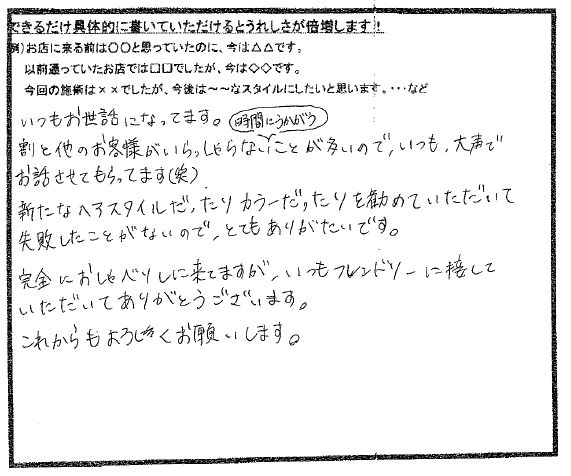 できるだけ具体的に書いていただけるとうれしさが倍増します!
例)お店に来る前は〇〇と思っていたのに、今は△△です。
以前通っていたお店では□□でしたが、今は◇◇です。
今回の施術は××でしたが、今後は〜〜なスタイルにしたいと思います。・・・など
いつもお世話になってます。
時間にうかがう
割と他のお客様がいらっしゃらないことが多いので、いつも、大声で
お話させてもらってます(笑)
新たなヘアスタイルだったりカラーだったりを勧めていただいて
失敗したことがないので、とてもありがたいです。
完全におしゃべりしに来てますが、いつもフレンドリーに接して
いただいてありがとうございます。
これからもよろしくお願いします。